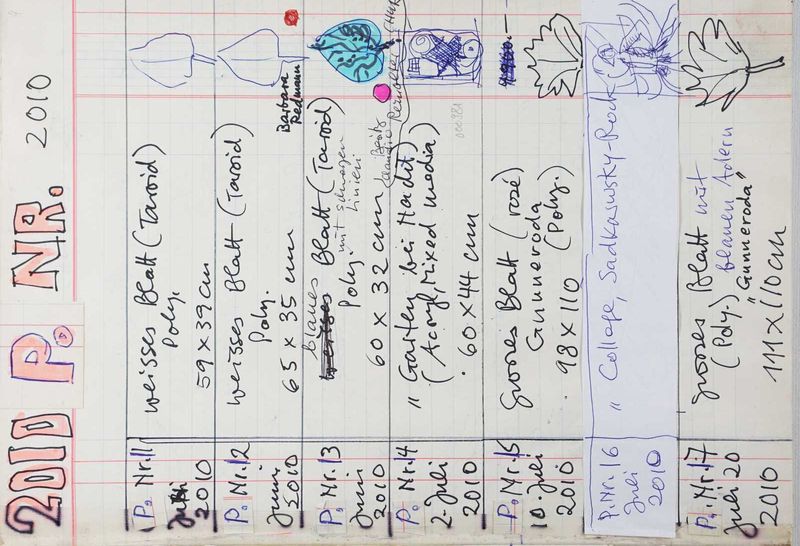 2010 P. NR. 2010
P. Nr. 11
Juni
2010
weisses Blatt (Taroid)
Poly.
59 x 39 cm
P. Nr. 12
Juni
2010
weisses Blatt (Taroid)
Poly.
65 x 35 cm
Barbara
Redmann
P. Nr. 13
Juni
2010
blaues Blatt (Taroid)
mit schwarzen
Linien
Poly.
60 x 32 cm
P. Nr. 14
2. Juli
2010
" Garten bei Nacht"
(Acryl, Mixed media)
60 x 44 cm
P. Nr. 15
10. Juli
2010
Grosses Blatt (rosé)
Gunneroda
98 x 110 (Poly.)
P. Nr. 16
Juli
2010
" Collage, Sadkowsky-Rock"
P. Nr. 17
Juli 20
2010
grosses Blatt mit
(Poly.) blauen Adern
"Gunneroda"
111 x 110 cm